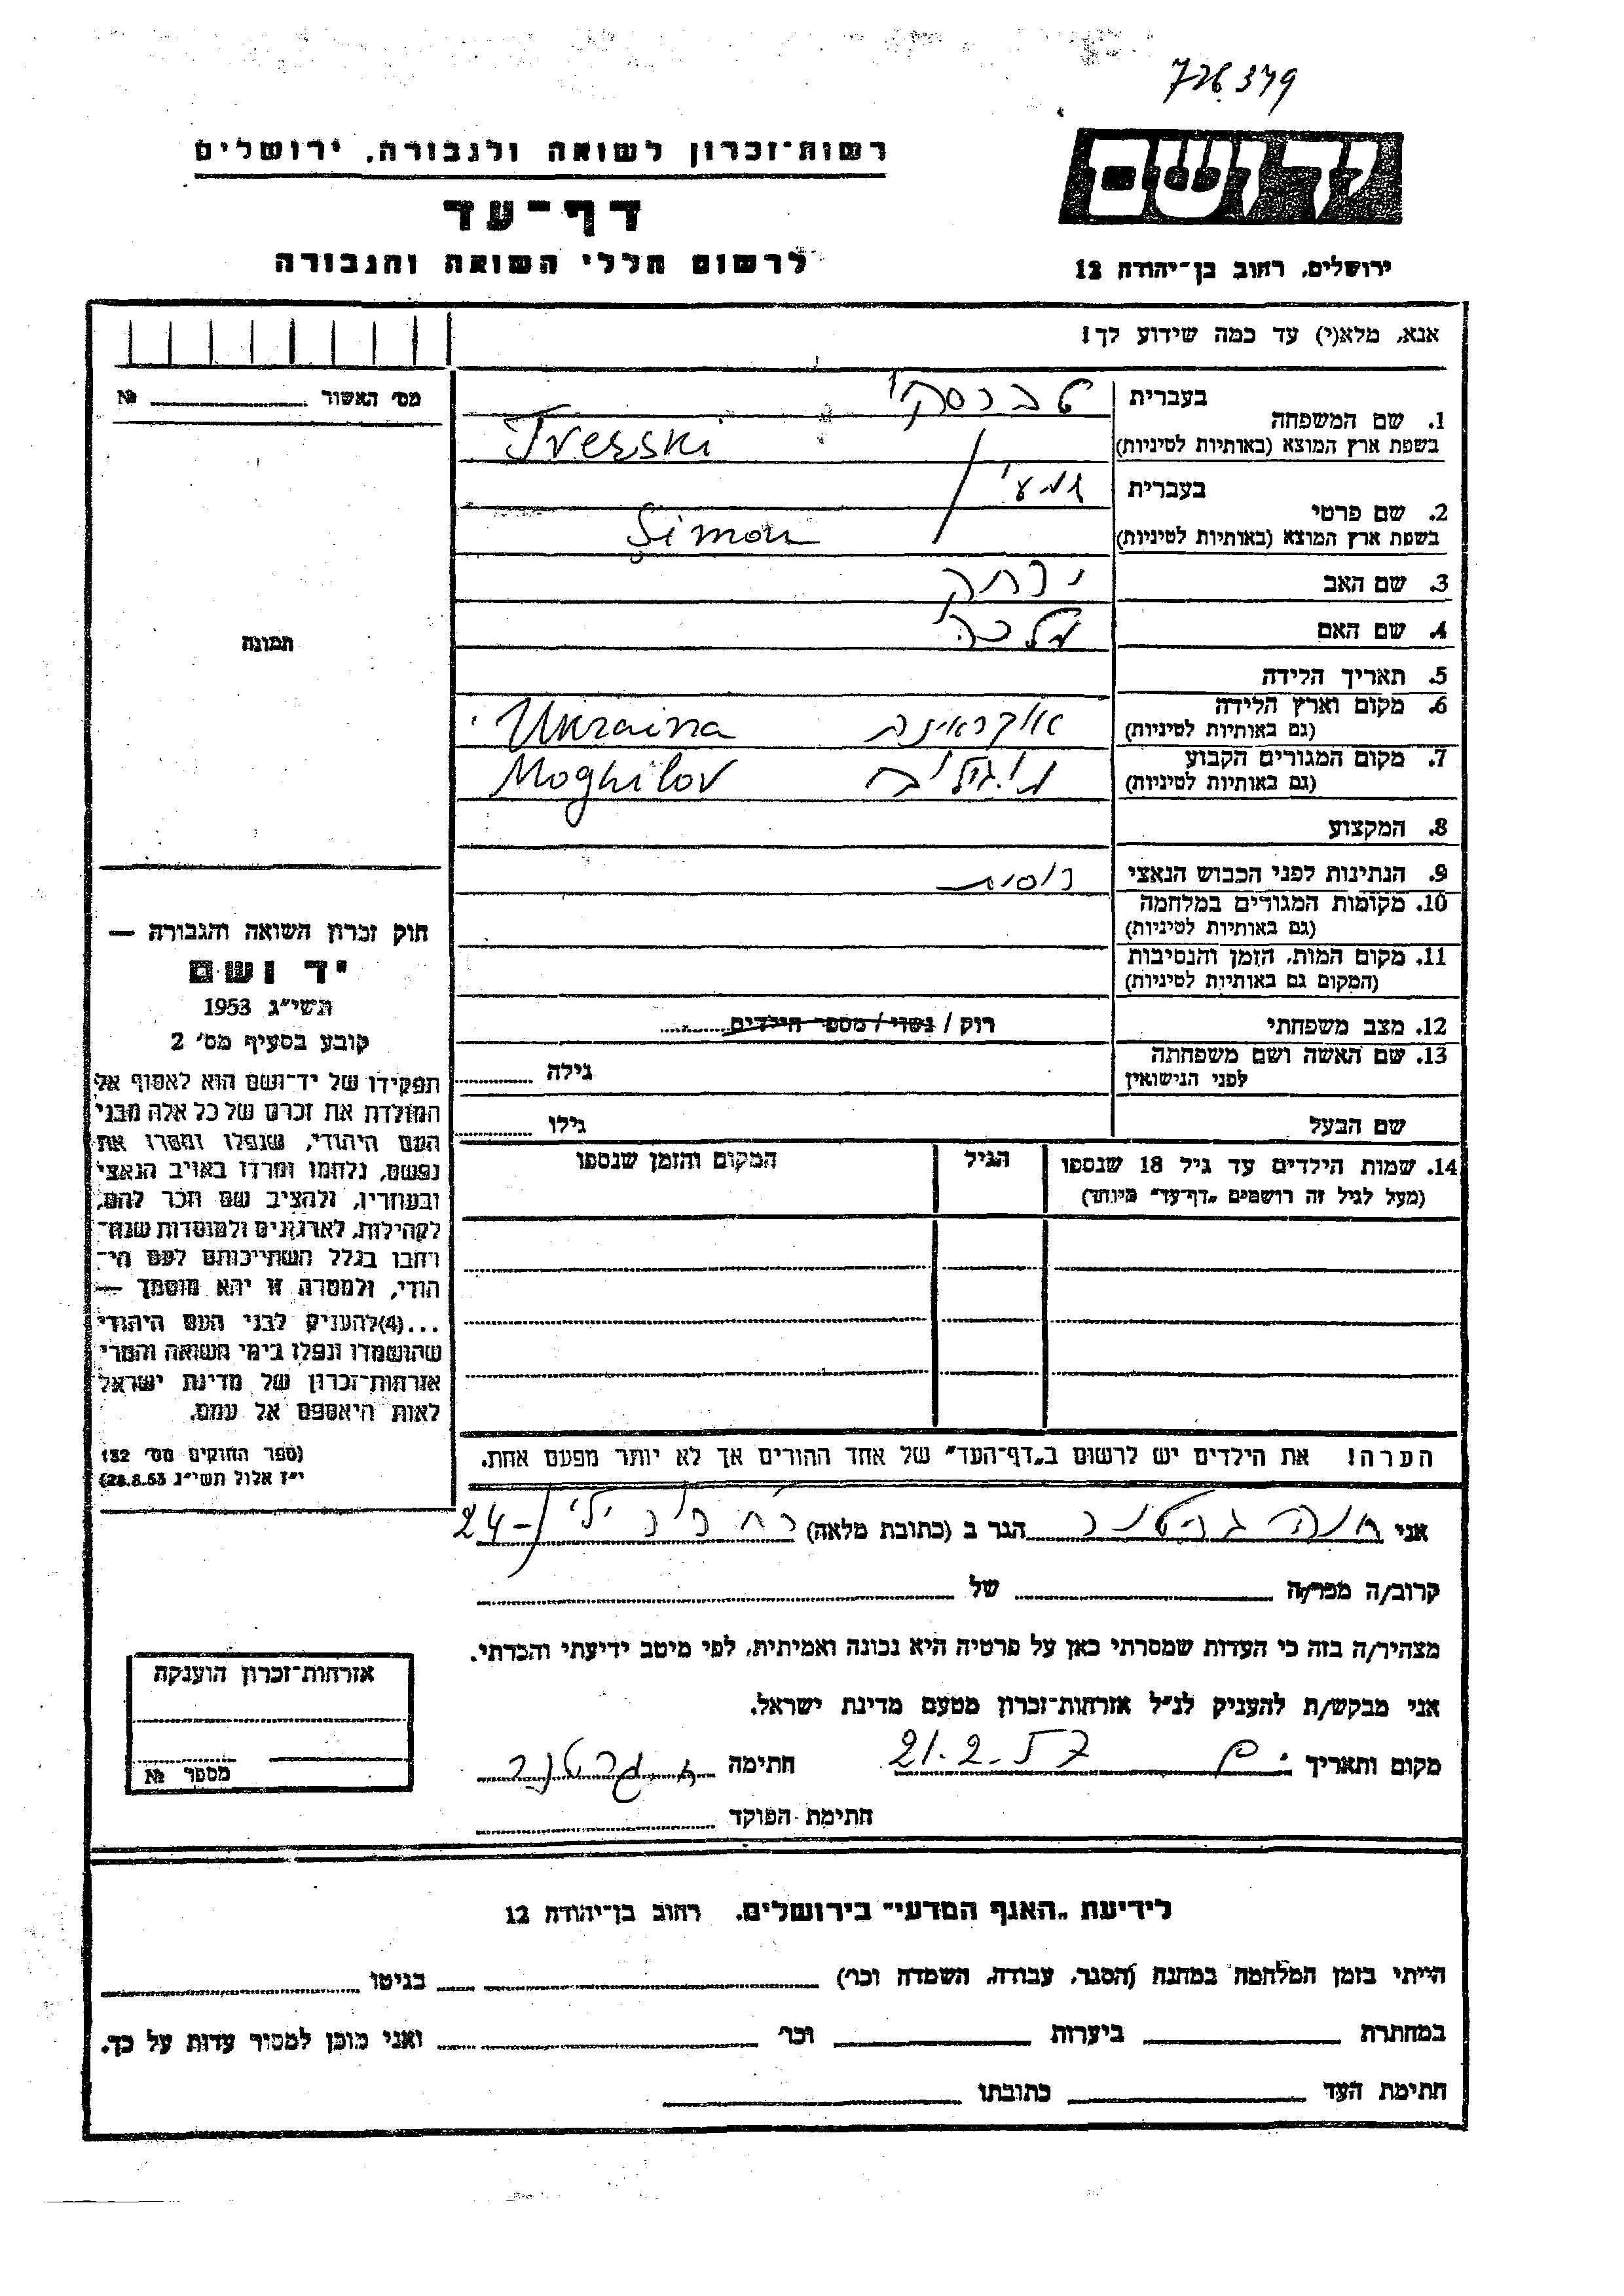 726379
רשות־זכרון לשואה ולגבורה, ירושלים
דף־עד
לרשום חללי השואה והגבורה
יד ושם
ירושלים, רחוב בן־יהודה 12
אנא, מלא(י) עד כמה שידוע לך!
מס׳ האשור № 
בעברית טברסקי
1. שם המשפחה
בשפת ארץ המוצא (באותיות לטיניות) Tverski
בעברית
2. שם פרטי
בשפת ארץ המוצא (באותיות לטיניות) Simon
3. שם האב
4. שם האם מלכה
תמונה
5. תאריך הלידה
6. מקום וארץ הלידה אוקראינה Ukraina
(גם באותיות לטיניות)
7. מקום המגורים הקבוע Moghilov
(גם באותיות לטיניות)
8. המקצוע
9. הנתינות לפני הכבוש הנאצי רוסית
10. מקומות המגורים במלחמה
(גם באותיות לטיניות)
11. מקום המות, הזמן והנסיבות
(המקום גם באותיות לטיניות)
12. מצב משפחתי רוק / נשוי / מספר הילדים
13. שם האשה ושם משפחתה גילה
לפני הנישואין
שם הבעל גילו
14. שמות הילדים עד גיל 18 שנספו הגיל המקום והזמן שנספו
(מעל לגיל זה רושמים „דף־עד״ מיוחד)
חוק זכרון השואה והגבורה —
יד ושם
תשי״ג 1953
קובע בסעיף מס׳ 2
תפקידו של יד־ושם הוא לאסוף אל
המולדת את זכרם של כל אלה מבני
העם היהודי, שנפלו ומסרו את
נפשם, נלחמו ומרדו באויב הנאצי
ובעוזריו, ולהציב שם וזכר להם,
לקהילות, לארגונים ולמוסדות שנח־
רבו בגלל השתייכותם לעם הי־
הודי, ולמטרה זו יהא מוסמך —
...(4)להעניק לבני העם היהודי
שהושמדו ונפלו בימי השואה והמרי
אזרחות־זכרון של מדינת ישראל
לאות היאספם אל עמם.
(ספר החוקים מס׳ 132
י״ז אלול תשי״ג 28.8.53)
הערה! את הילדים יש לרשום ב„דף־העד״ של אחד ההורים אך לא יותר מפעם אחת.
אני חנה גרטנר הגר ב (כתובת מלאה) 24
קרוב/ה מכר/ה של
מצהיר/ה בזה כי העדות שמסרתי כאן על פרטיה היא נכונה ואמיתית, לפי מיטב ידיעתי והכרתי.
אני מבקש/ת להעניק לנ״ל אזרחות־זכרון מטעם מדינת ישראל.
מקום ותאריך 21.2.57 חתימה ח. גרטנר
חתימת הפוקד
אזרחות־זכרון הוענקה
מספר №
לידיעת „האגף המדעי״ בירושלים. רחוב בן־יהודה 12
הייתי בזמן המלחמה במחנה (הסגר, עבודה, השמדה וכו׳) בגיטו
במחתרת ביערות וכו׳ ואני מוכן למסור עדות על כך.
חתימת העד כתובתו